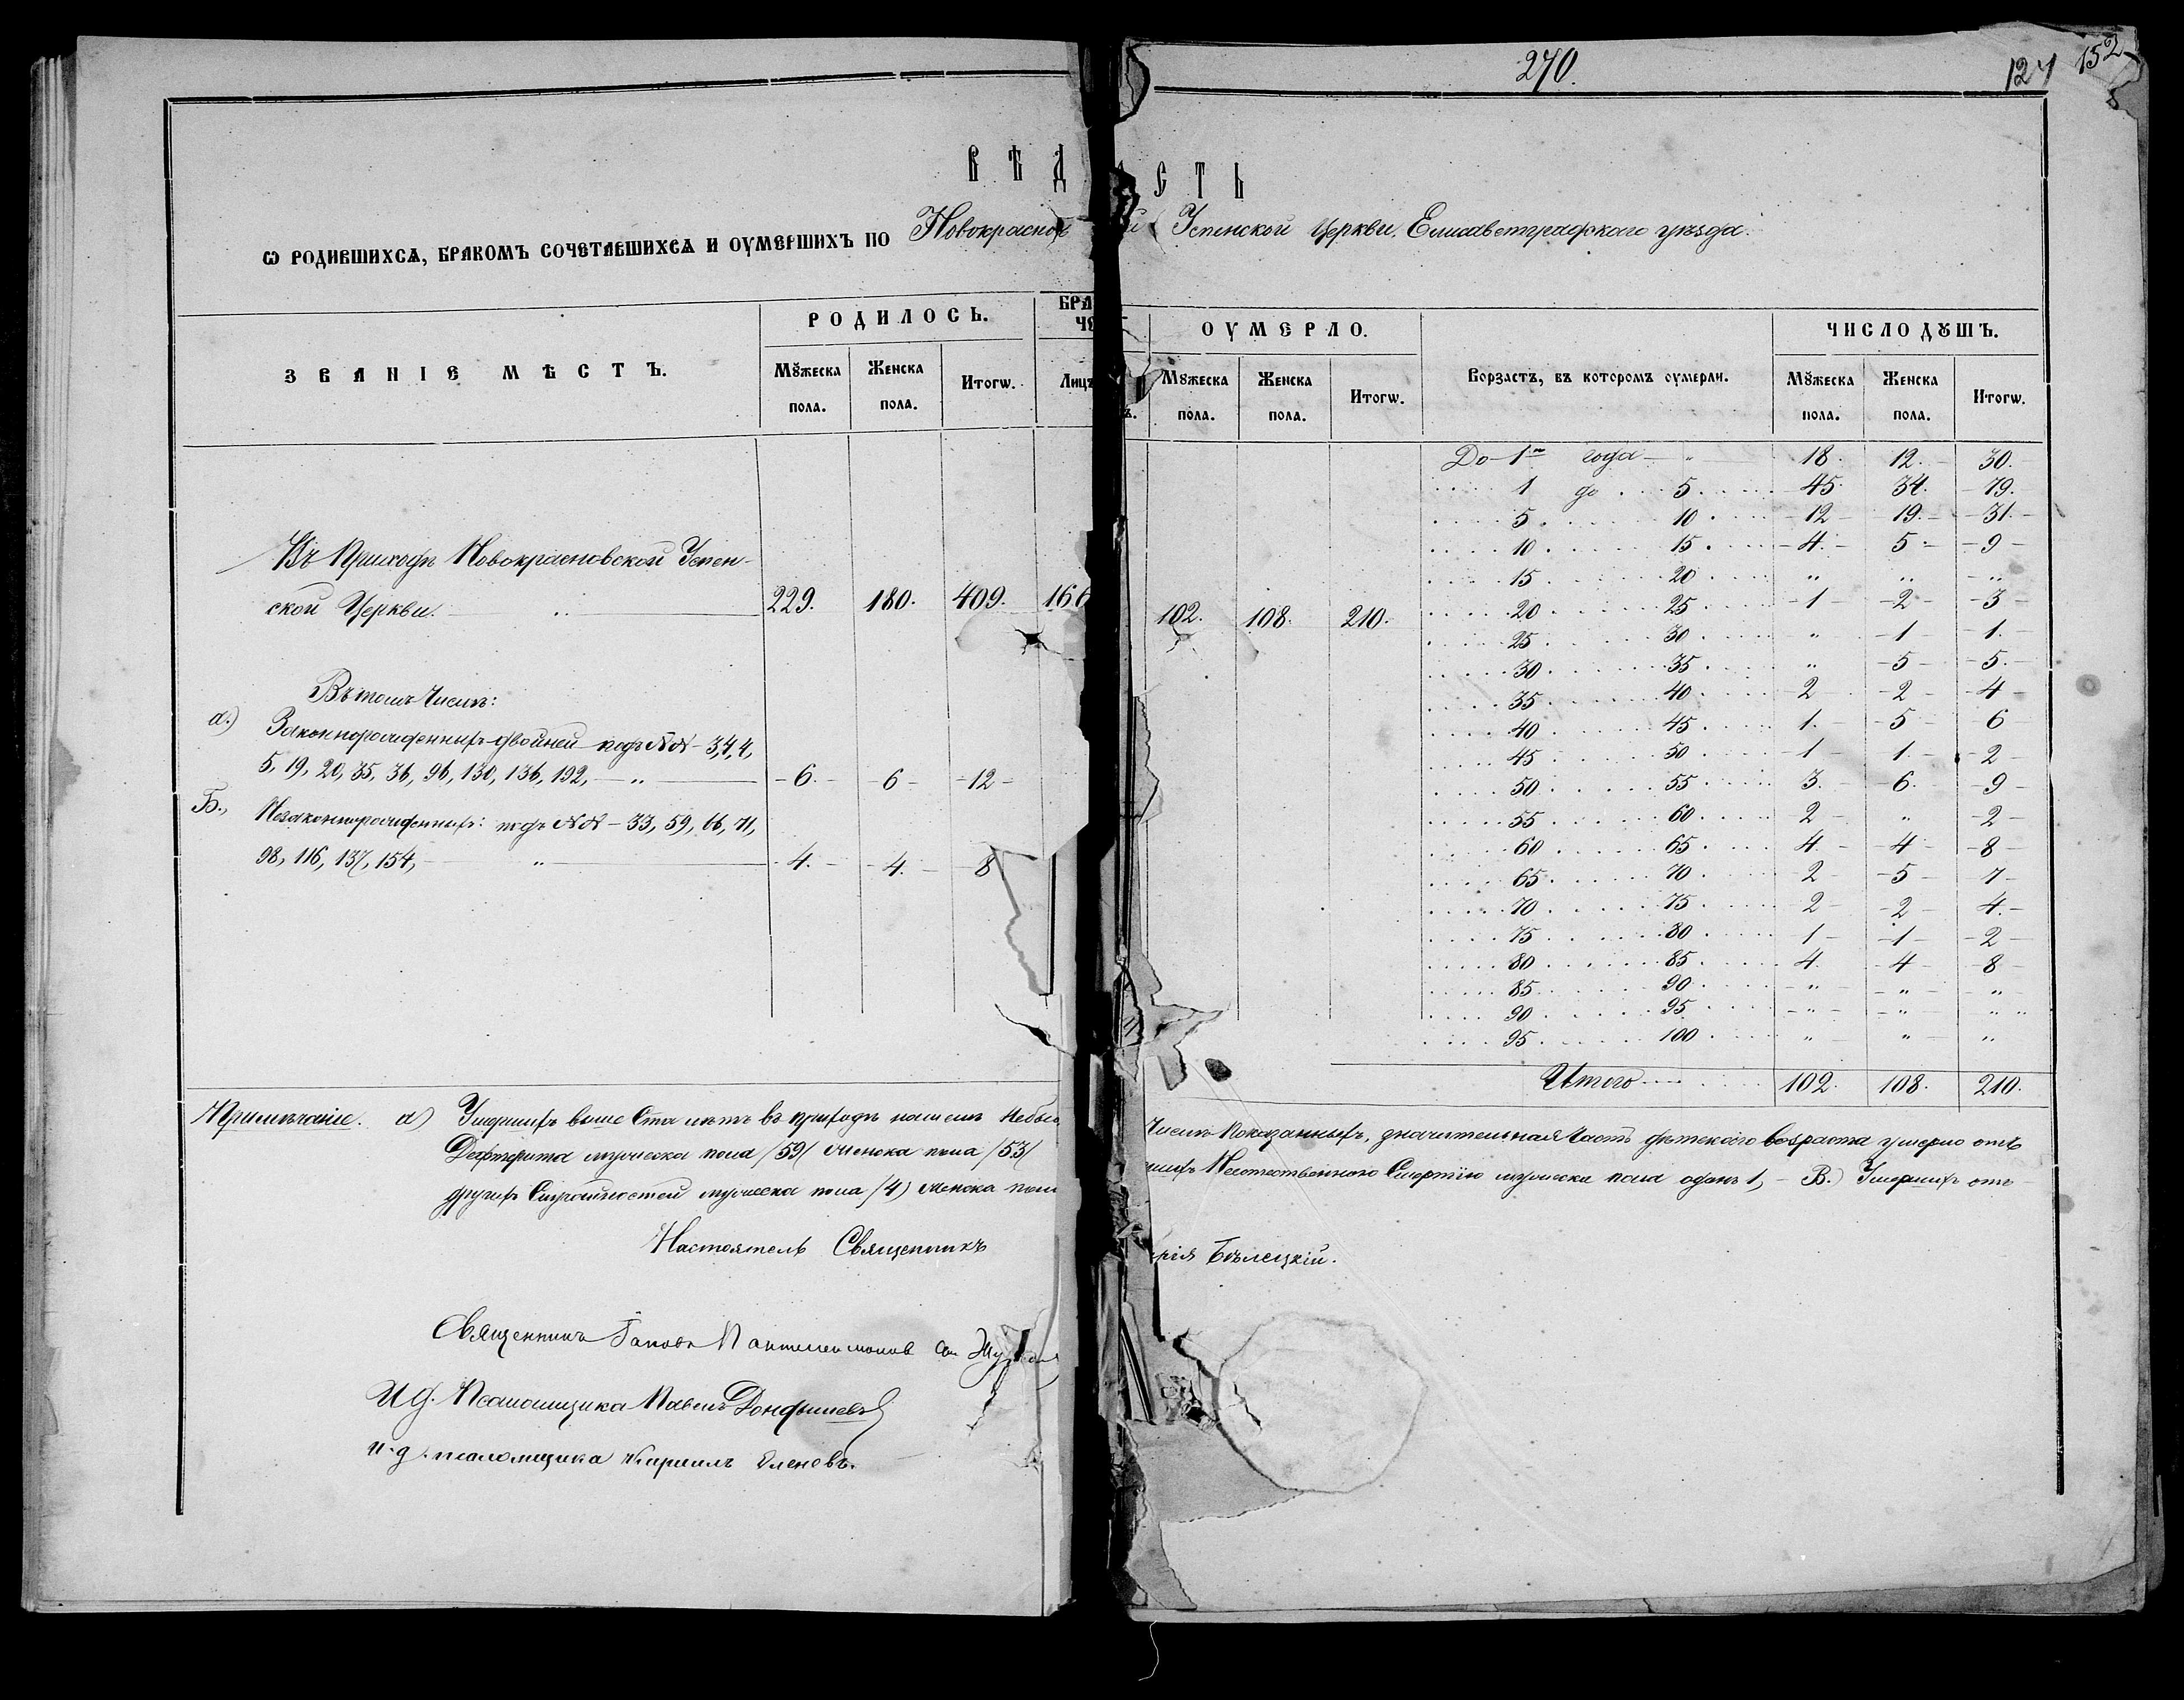 270.
127 152
ВѢД СТЬ
Ѡ РОДИВШИХСѦ, БРАКОМЪ СОЧЕТАВШИХСѦ И ОУМЕРШИХЪ ПО Новокраснов й Успенской Церкви, Елисаветградскаго уѣзда.
РОДИЛОСЬ. БРА ЧЕ ОУМЕРЛО. ЧИСЛО ДꙊШЪ.
ЗВАНІЕ МѢСТЪ. Мꙋжеска пола. Женска пола. Итогѡ. Лицъ Мꙋжеска пола. Женска пола. Итогѡ. Возрастъ, въ которомъ оумерли. Мꙋжеска пола. Женска пола. Итогѡ.
До 1го года 18. 12. 30.
1 до 5 45. 34. 79.
5 10 12 19. 31.
10 15 4. 5 9
15 20 " " "
20 25 1 2 3
25 30 " 1 1.
30 35 " 5 5.
35 40 2 2 4
40 45 1. 5 6
45 50 1 1. 2
50 55 3. 6. 9
55 60 2 " 2
60 65 4. 4 8
65 70 2 5 7
70 75 2 2 4.
75 80 1 1 2
80 85 4. 4 8
85 90 " " "
90 95 " " "
95 100 " " "
Итого 102. 108. 210.
Въ Приходѣ Новокрасновской Успен-
ской Церкви. 229. 180. 409. 166 102. 108. 210.
Въ томъ Числѣ:
а.) Законнорожденныхъ двойней подъ №№ - 3, 4, 4,
5, 19, 20, 35, 36, 96, 130, 136, 192, 6. 6 12
Б., Незаконнорожденныхъ: подъ №№ - 33, 59, 66, 71,
98, 116, 137, 154, 4. 4. 8
Примѣчаніе. а) Умершихъ выше Ста лѣтъ въ приходѣ нашемъ Небыл Числѣ Показанныхъ, значительная Часть дѣтскаго возраста умерло отъ
Дифтерита мужеска пола /59/ женска пола /53/ шихъ Неестественною Смертію мужеска пола одинъ 1, - В.) Умершихъ отъ
другихъ Случайностей мужеска пола /4) женска пол
Настоятель Священникъ рія Бѣлецкій.
Священникъ Іаковъ Пантелеимонов
И. д. Псаломщика Павелъ
и. д. псаломщика Кириллъ Еленевъ.